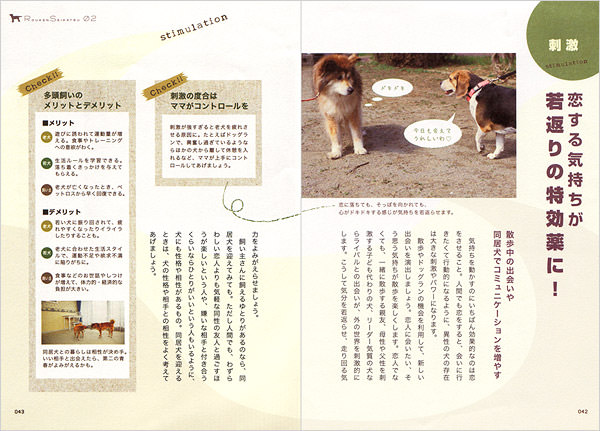 刺激
stimulation
恋する気持ちが
若返りの特効薬に!
ドキドキ
今日も会えて
うれしいわ♡
恋に落ちても、そっぽを向かれても、
心がドキドキする感じが気持ちを若返らせます。
散歩中の出会いや
同居犬でコミュニケーションを増やす
気持ちを動かすのにいちばん効果的なのは恋
をさせること。人間でも恋をすると、会いに行
きたくて行動的になるように、異性の犬の存在
は大きな刺激やパワーになります。
散歩やドッグランの機会を利用して、新しい
出会いを演出しましょう。恋人に会いたい、そ
う思う気持ちが散歩を楽しくします。恋人でな
くても、一緒に散歩する親友、母性や父性を刺
激する子ども代わりの犬、リーダー気質の犬な
らライバルとの出会いが、外の世界を刺激的に
します。こうして気分を若返らせ、走り回る気
042
ROUKEN SEIKATSU 02
stimulation
Check!!
刺激の度合は
ママがコントロールを
刺激が強すぎると老犬を疲れさ
せる原因に。たとえばドッグラ
ンで、興奮し過ぎているような
らほかの犬から離して休憩を入
れるなど、ママが上手にコント
ロールしてあげましょう。
力をよみがえらせましょう。
飼い主さんに飼えるゆとりがあるのなら、同
居犬を迎えてみても。ただし人間でも、わずら
わしい恋人よりも気軽な同性の友人と過ごすほ
うが楽しいという人や、嫌いな相手と付き合う
くらいならひとりがいいという人もいるように、
犬にも性格や相性があるもの。同居犬を迎える
ときは、犬の性格や相手との相性をよく考えて
あげましょう。
Check!!
多頭飼いの
メリットとデメリット
■メリット
老犬 遊びに誘われて運動量が増
える。食事やトレーニング
への意欲がわく。
若犬 生活ルールを学習できる。
落ち着くきっかけを与えて
もらえる。
飼い主 老犬が亡くなったとき、ペ
ットロスから早く回復できる。
■デメリット
老犬 若い犬に振り回されて、疲
れやすくなったりイライラ
したりすることも。
若犬 老犬に合わせた生活スタイ
ルで、運動不足や欲求不満
に陥りがちに。
飼い主 食事などのお世話やしつけ
が増えて、体力的・経済的な
負担が大きい。
同居犬との暮らしは相性が決め手。
いい相手と出会えたら、第二の青
春がよみがえるかも。
043